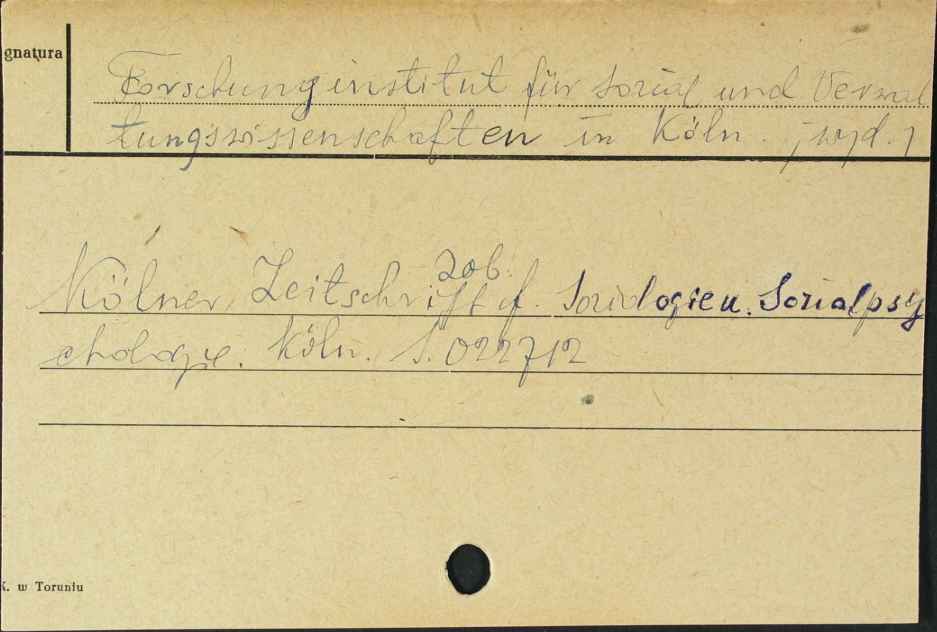 gnatura
Forschunginstitut für Sozial und Verwal
tungswissenschaften in Köln. , wyd. ,
zob.
Kölner Zeitschrift f. Soziologie u. Sozialpsy
chologie. Köln. S. 022712
K. w Toruniu